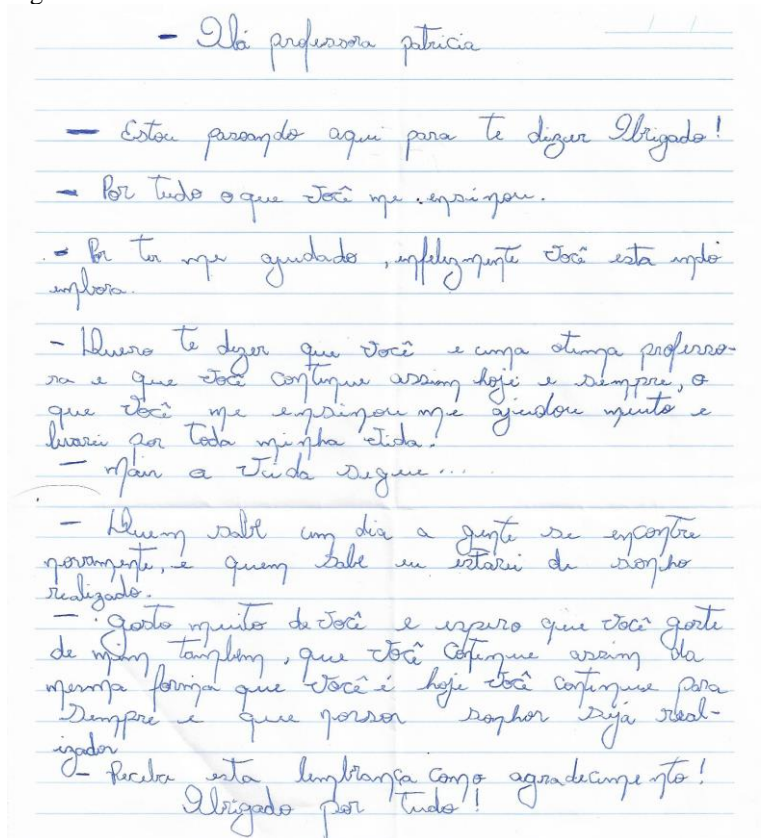 - Olá professora patricia
- Estou passando aqui para te dizer Obrigado!
- Por tudo o que você me ensinou.
- Por ter me ajudado, infelizmente você esta indo
embora.
- Quero te dizer que você e uma otima professo-
ra e que você continue assim hoje e sempre, o
que você me ensinou me ajudou muito e
levarei por toda minha vida.
- Mais a vida segue....
- Quem sabe um dia a gente se encontre
novamente, e quem sabe eu estarei de sonho
realizado.
- gosto muito de você e espero que você goste
de mim também, que você continue assim da
mesma forma que você é hoje você continue para
sempre e que nossos sonhos seja real-
izados
- Receba esta lembrança como agradecimento!
Obrigado por tudo!